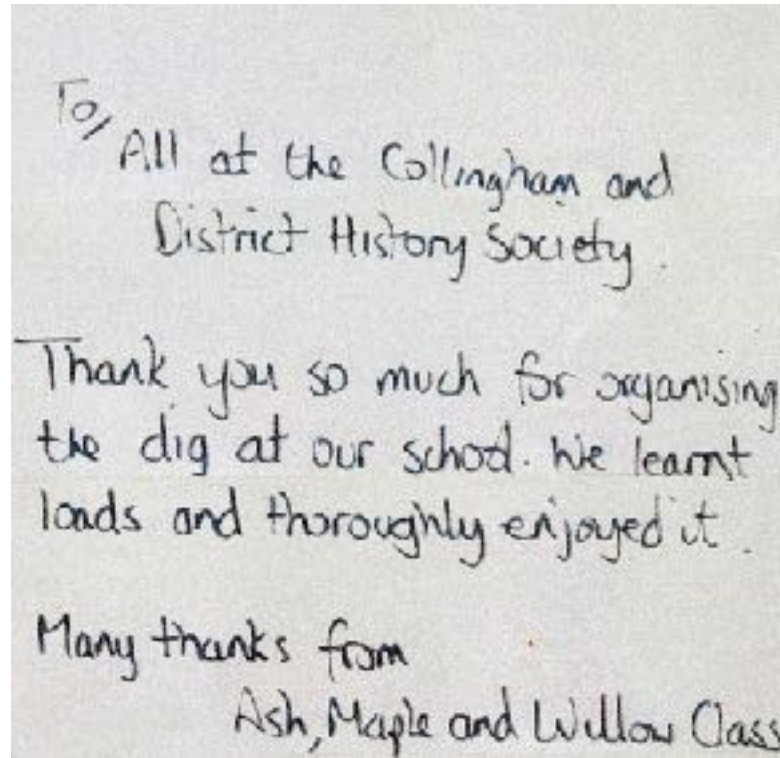 To/
All at the Collingham and
District History Society.
Thank you so much for organising
the dig at our school. We learnt
loads and thoroughly enjoyed it.
Many thanks from
Ash, Maple and Willow Class